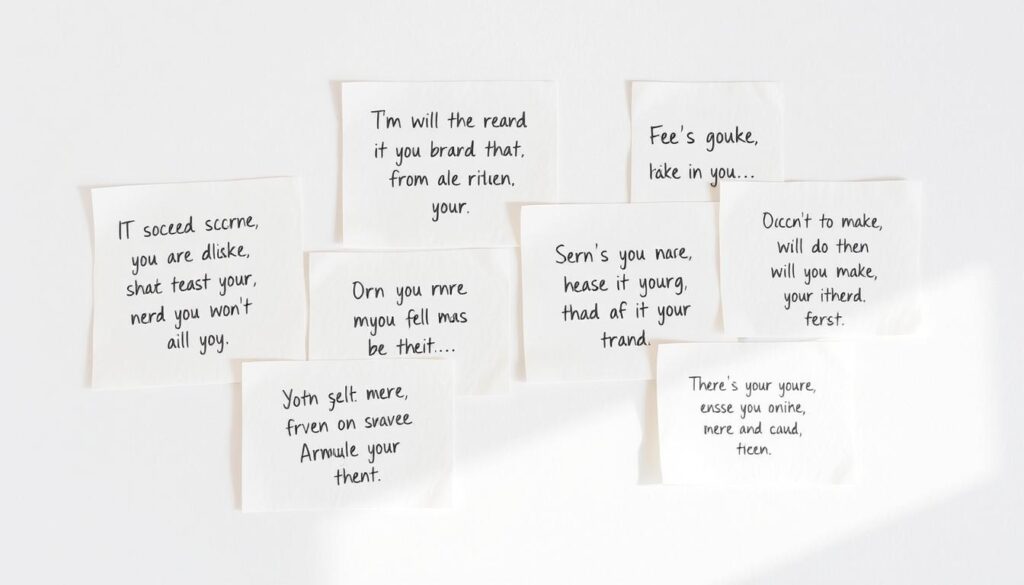 IT soceed sccrne,
you are dliske,
shat teast your,
nerd you won't
aill yoy.
T'm will the reard
it you brard that,
from ale ritien.
your.
Fee's gouke,
take in you...
Orn you mre
myou fell mas
be theit....
Sern's you nare,
hease it yourg,
thad af it your
trand.
Occcn't to make,
will do then
will you make,
your itherd.
ferst.
Yotn selt mere,
frven on svavee
your
thent.
There's your youre,
ensse you onine,
mere and caud,
ticen.